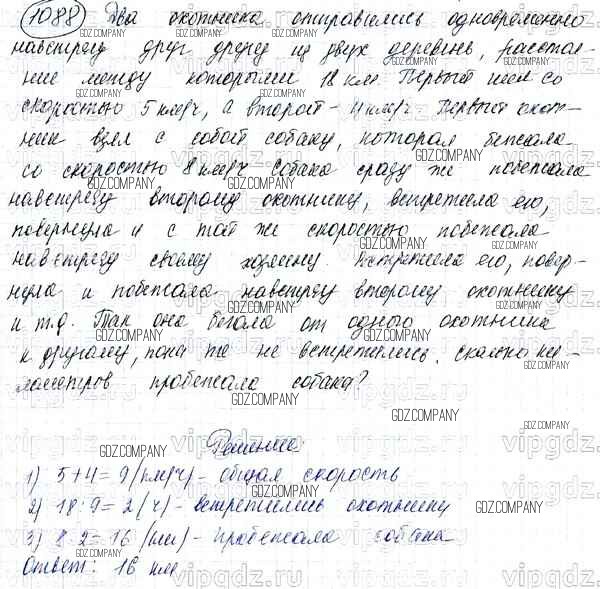 1088 Два охотника отправились одновременно
навстречу друг другу из двух деревень, расстоя-
ние между которыми 18 км. Первый шел со
скоростью 5 км/ч, а второй - 4 км/ч. Первый охот-
ник взял с собой собаку, которая бежала
со скоростью 8 км/ч. Собака сразу же побежала
навстречу второму охотнику, встретила его,
повернула и с той же скоростью побежала
навстречу своему хозяину. Встретила его, повер-
нула и побежала навстречу второму охотнику
и т.д. Так она бегала от одного охотника
к другому, пока те не встретились. Сколько ки-
лометров пробежала собака?
Решение:
1) 5+4=9 (км/ч) - общая скорость
2) 18:9=2 (ч) - встретились охотники
3) 8·2=16 (км) - пробежала собака
Ответ: 16 км.
GDZ.COMPANY
vipgdz.ru